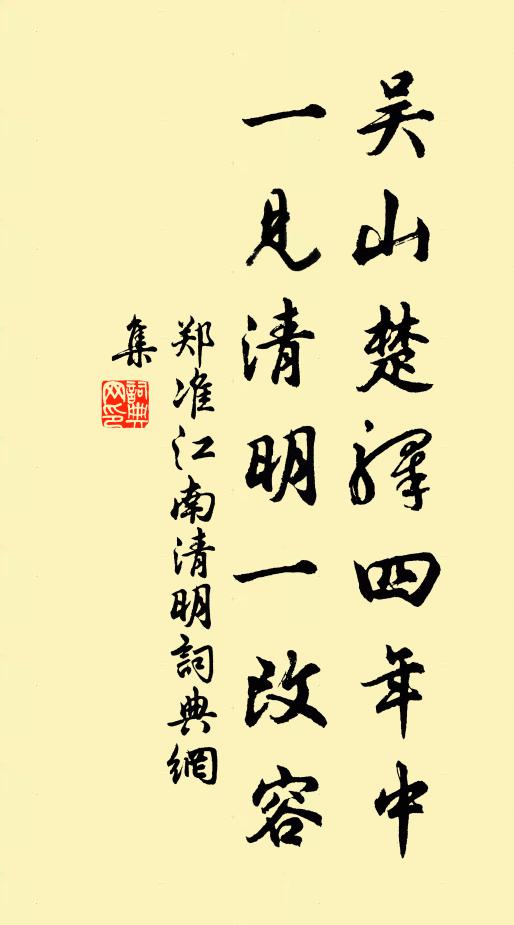 吴山楚驿四年中
一见清明一改容
郑准江南清明詞典網
集
詞典
网印